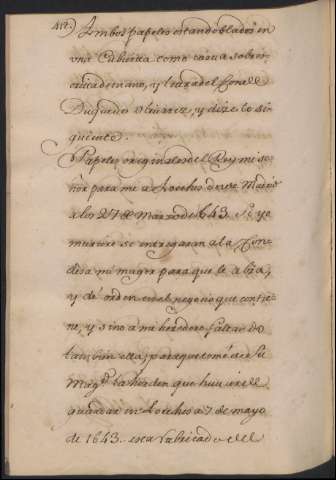 412) Ambos papeles estan doblados en
una Cubierta como carta sobre
escrita de mano, y letra del Conde
Duque de Olivares, y dize lo si
guiente.
Papeles originales del Rey mi se
ñor para mi a Loeches de su Mag.d
a los 27 de Marzo de 643. Si yo
muriere se entregaran a la Con
desa mi muger para que le abra,
y dé orden en el negocio que contie
ne, y sino a mi heredero faltando
tambien ella, para que tome de su
Mag.d la horden que huviere de
guardar en Loeches a 7 de mayo
de 1643. esta rubricado del